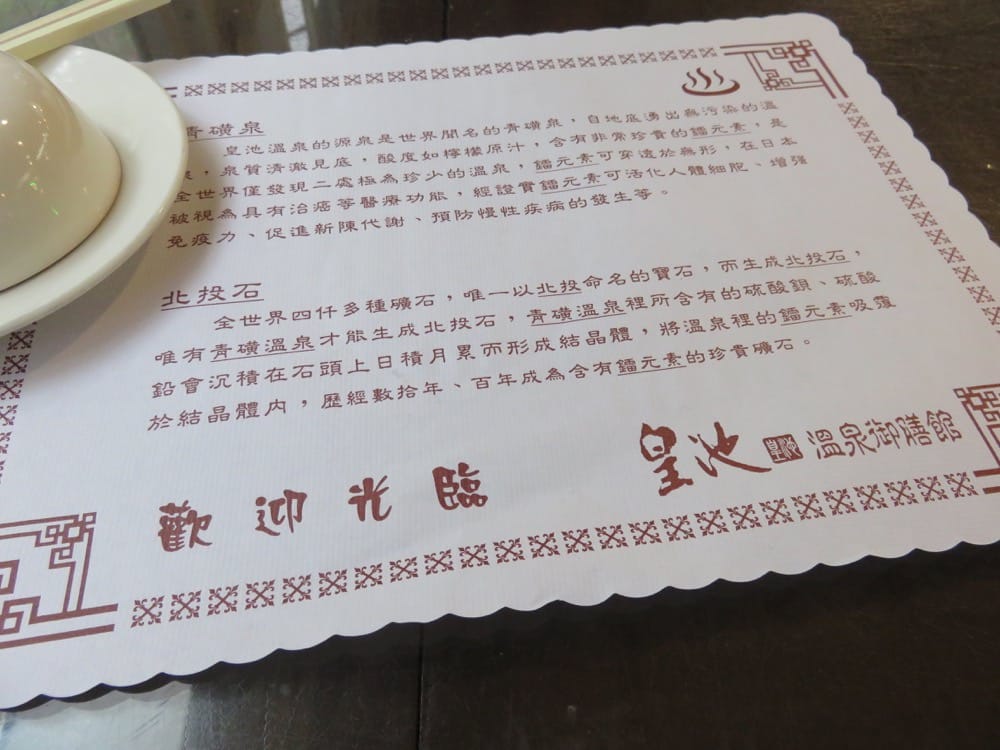 青磺泉
皇池溫泉的源泉是世界聞名的青磺泉，自地底湧出無污染的溫
泉，泉質清澈見底，酸度如檸檬原汁，含有非常珍貴的鐳元素，是
全世界僅發現二處極為珍少的溫泉，鐳元素可穿透於無形，在日本
被視為具有治癌等醫療功能，經證實鐳元素可活化人體細胞、增強
免疫力、促進新陳代謝、預防慢性疾病的發生等。
北投石
全世界四仟多種礦石，唯一以北投命名的寶石，而生成北投石，
唯有青磺溫泉才能生成北投石，青磺溫泉裡所含有的硫酸鋇、硫酸
鉛會沉積在石頭上日積月累而形成結晶體，將溫泉裡的鐳元素吸覆
於結晶體內，歷經數拾年、百年成為含有鐳元素的珍貴礦石。
歡迎光臨
皇池 皇池 溫泉御膳館